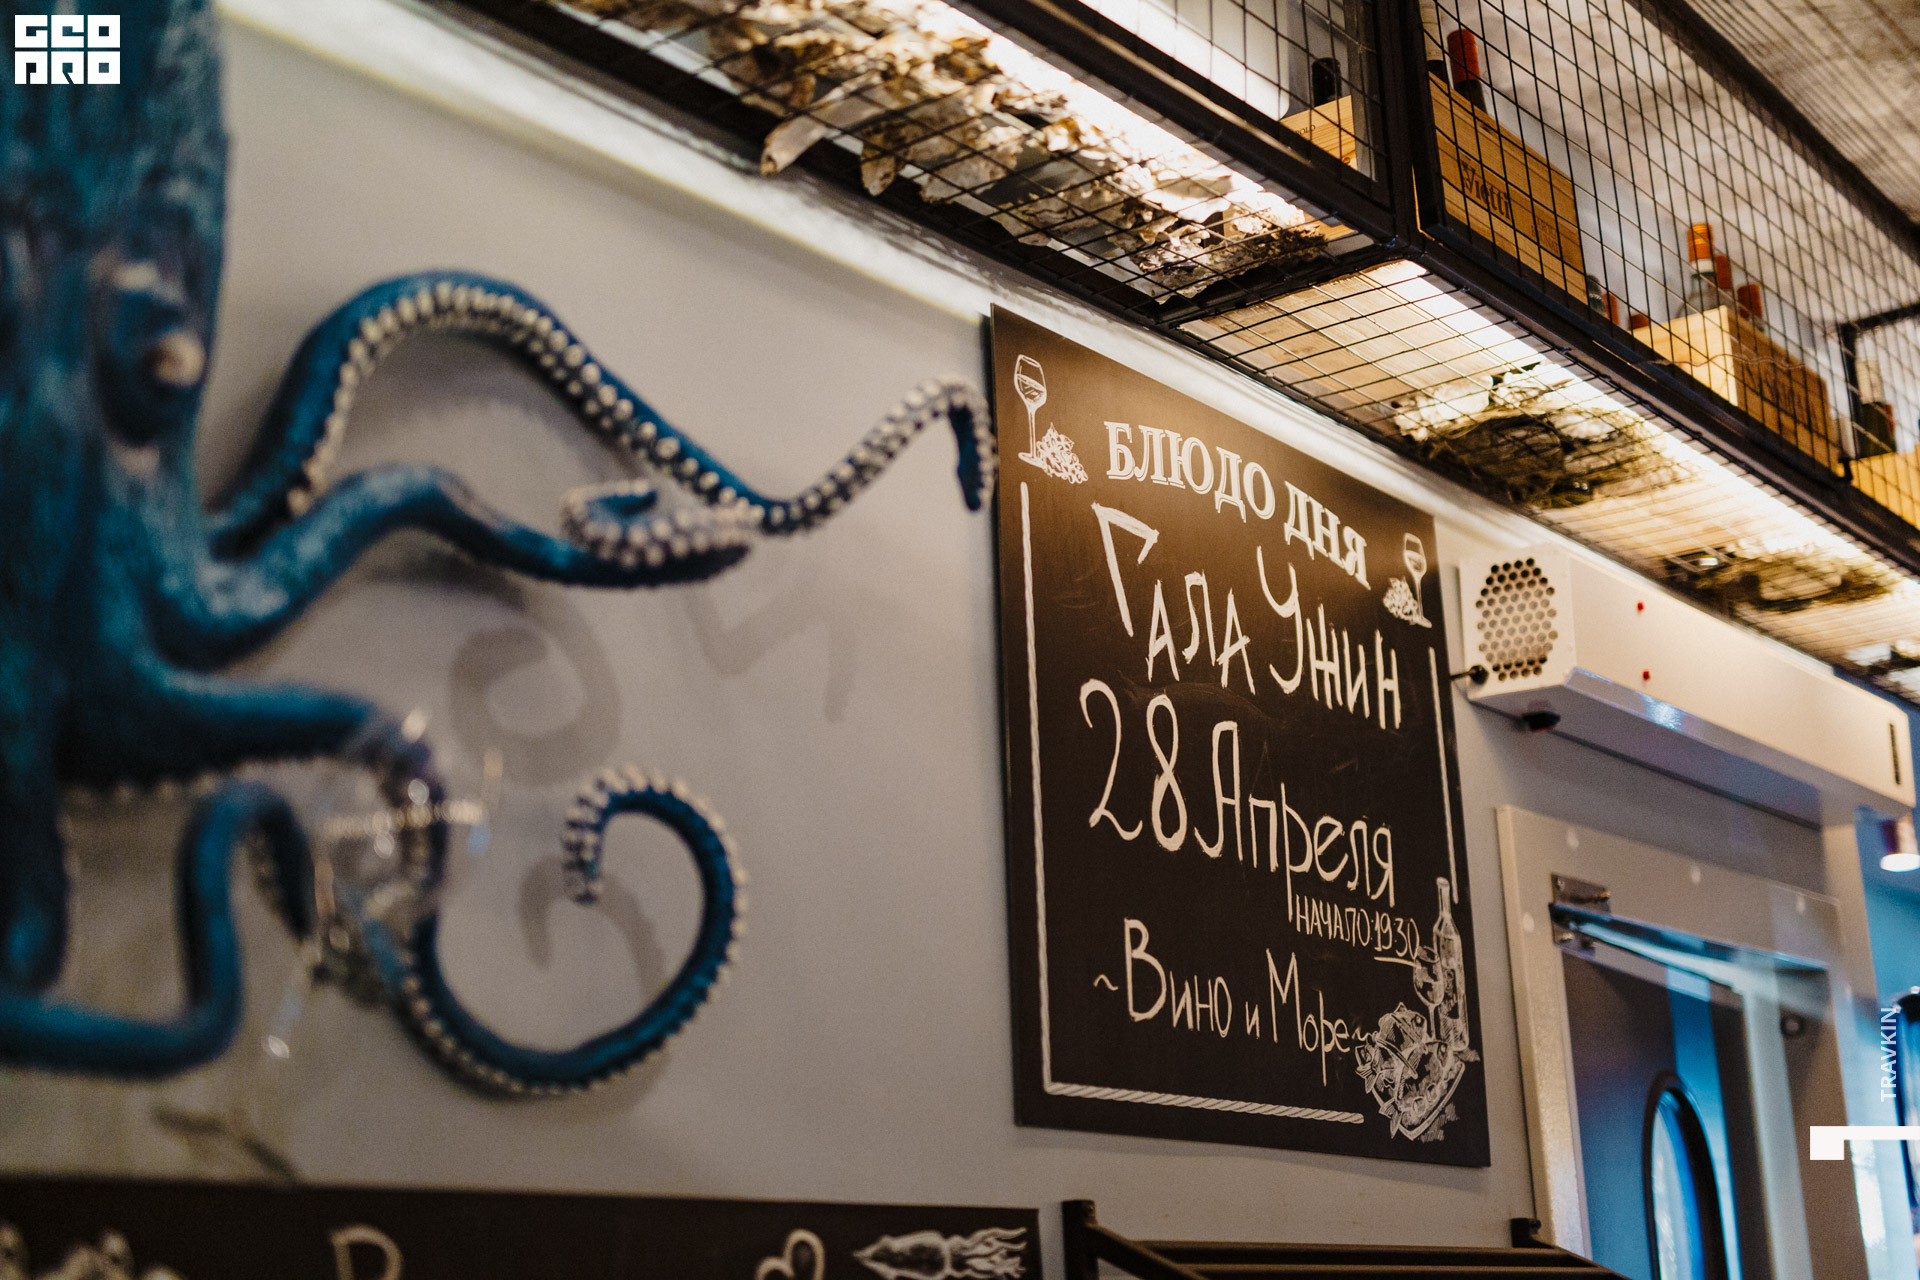 GEO
PRO
Vietti
БЛЮДО ДНЯ
Гала Ужин
28 Апреля
НАЧАЛО: 19:30
~ Вино и Море ~
TRAVKIN